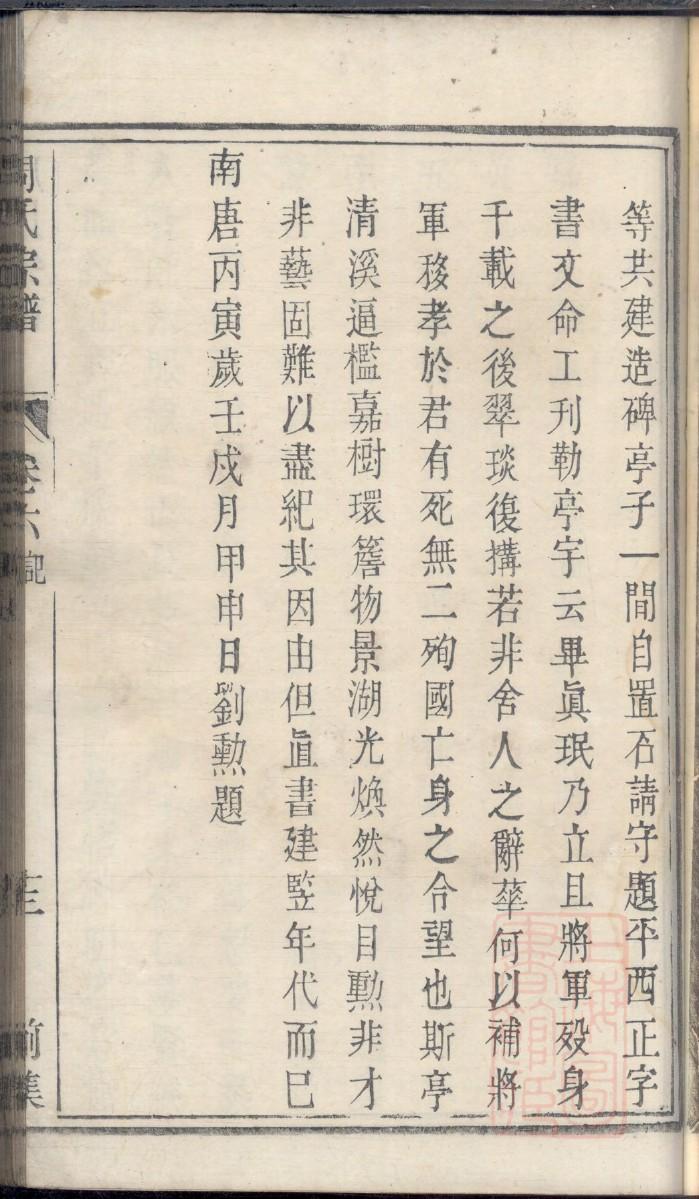 等共建造碑亭子一間自置石請守題平西正字
書文命工刋勒亭宇云畢眞珉乃立且將軍歿身
千載之後翠琰復搆若非舍人之辭華何以補將
軍移孝於君有死無二殉國亡身之令望也斯亭
清溪逼檻嘉樹環簷物景湖光煥然悅目勲非才
非藝固難以盡紀其因由但眞書建竪年代而巳
南唐丙寅歲壬戍月甲申日劉勲題
周氏宗譜
卷六
記
前集